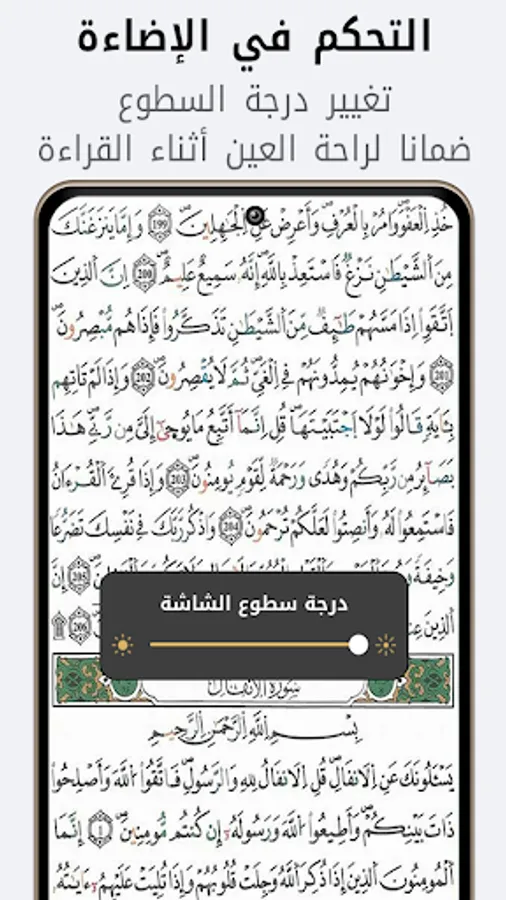 التحكم في الإضاءة
تغيير درجة السطوع
ضمانا لراحة العين أثناء القراءة
خُذِ اِلْعَفْوَ وَامُرْ بِالْعُرْفِ وَأَعْرِضْ عَنِ اِلْجَٰهِلِينَۖ 199 وَإِمَّا يَنزَغَنَّكَ
مِنَ اَلشَّيْطَٰنِ نَزْغٞ فَاسْتَعِذْ بِاللَّهِۖ إِنَّهُۥ سَمِيعٌ عَلِيمٌۖ 200 إِنَّ اَلذِينَ
اَتَّقَوِاْ إِذَا مَسَّهُمْ طَٰٓئِفٞ مِّنَ اَلشَّيْطَٰنِ تَذَكَّرُواْ فَإِذَا هُم مُّبْصِرُونَۖ
201 وَإِخْوَٰنُهُمْ يُمِدُّونَهُمْ فِے اِلْغَيِّ ثُمَّ لَا يُقْصِرُونَۖ 202 وَإِذَا لَمْ تَاتِهِم
بِـَٔايَةٖ قَالُواْ لَوْلَا اَجْتَبَيْتَهَاۖ قُلِ اِنَّمَآ أَتَّبِعُ مَا يُوحَىٰٓ إِلَيَّ مِن رَّبِّےۖ هَٰذَا
بَصَآئِرُ مِن رَّبِّكُمْ وَهُدىٗ وَرَحْمَةٞ لِّقَوْمٖ يُومِنُونَۖ 203 وَإِذَا قُرِۓَ اَلْقُرْءَانُ
فَاسْتَمِعُواْ لَهُۥ وَأَنصِتُواْ لَعَلَّكُمْ تُرْحَمُونَۖ 204 وَاذْكُر رَّبَّكَ فِے نَفْسِكَ تَضَرُّعاٗ
وَخِيفَةٗ 205 إِنَّ
اَلذِينَ 206
درجة سطوع الشاشة
سُورَةُ الْأَنْفَالِ
بِسْمِ اِللَّهِ اِلرَّحْمَٰنِ اِلرَّحِيمِ
يَسْـَٔلُونَكَ عَنِ اِلَانفَالِۖ قُلِ اِلَانفَالُ لِلهِ وَالرَّسُولِۖ فَاتَّقُواْ اُللَّهَ وَأَصْلِحُواْ
ذَاتَ بَيْنِكُمْۖ وَأَطِيعُواْ اُللَّهَ وَرَسُولَهُۥٓ إِن كُنتُم مُّومِنِينَۖ 1 إِنَّمَا
اَلْمُومِنُونَ اَلذِينَ إِذَا ذُكِرَ اَللَّهُ وَجِلَتْ قُلُوبُهُمْ وَإِذَا تُلِيَتْ عَلَيْهِمُۥٓ ءَايَٰتُهُۥ